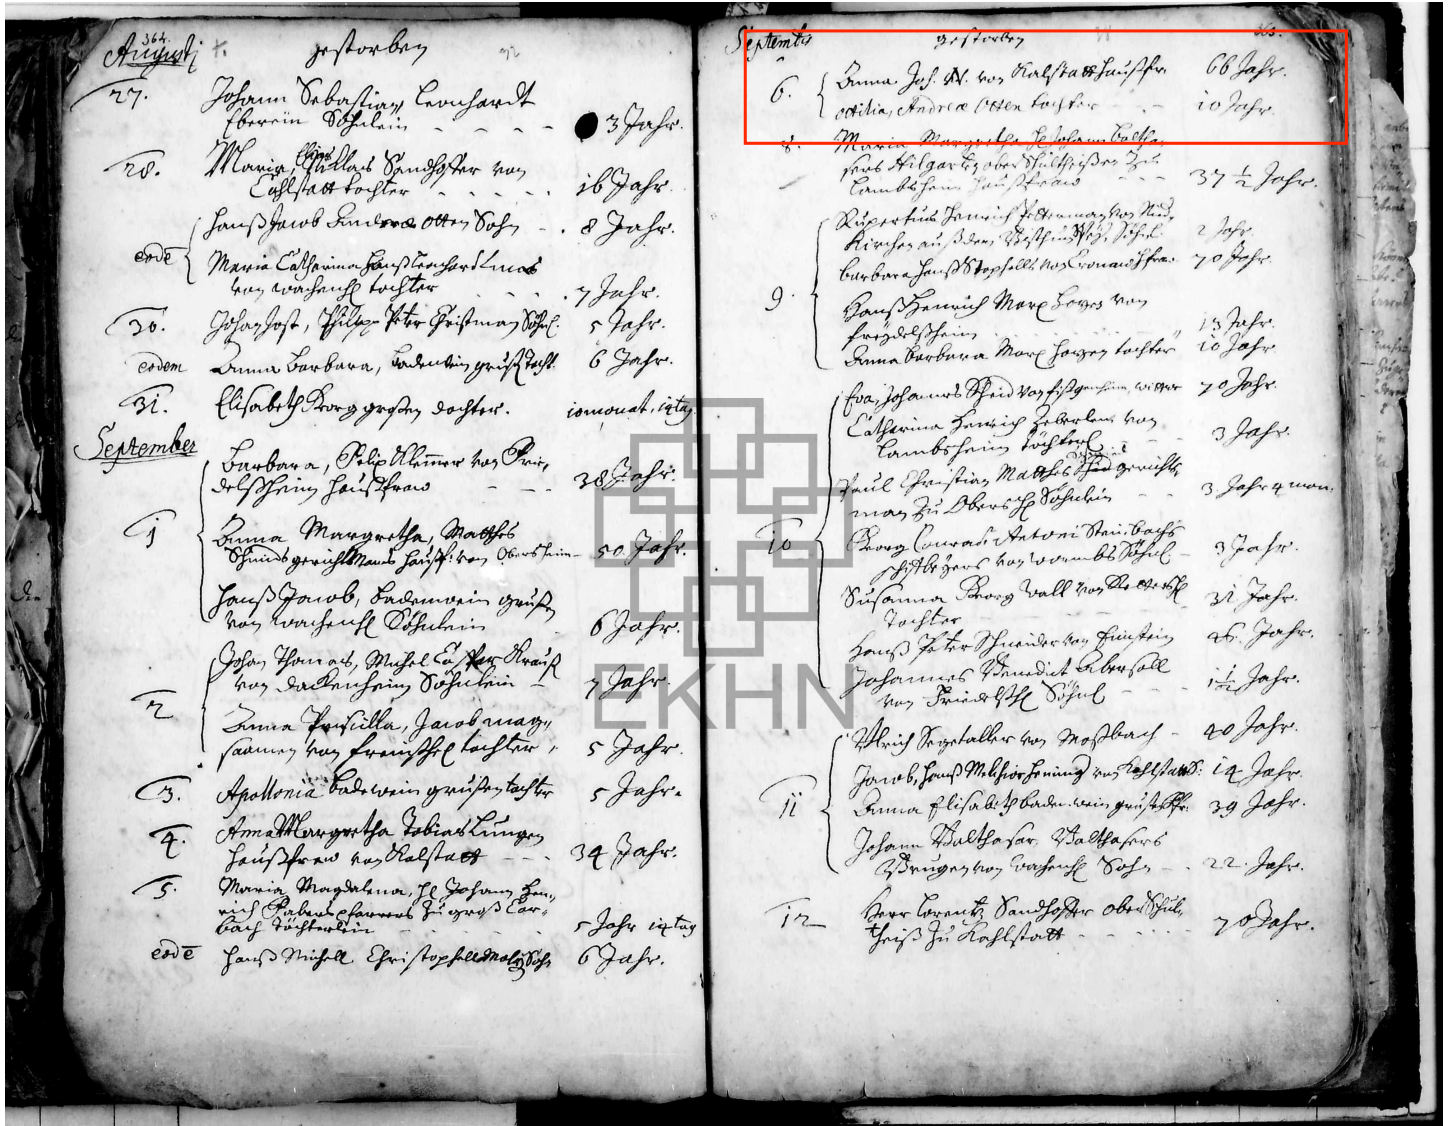 364.
Augusti
gestorben
27.
Johann Sebastian Leonhardt
Eberein Söhnlein
3 Jahr.
28.
Maria, Claus Sandhoffer von
Cahlstatt tochter
16 Jahr.
Hanß Jacob Andreæ Otten Sohn
8 Jahr.
eodē
Maria Catharina Hanß Leonhardt
von tochter
7 Jahr.
30.
Johan Jost, Philipp Peter Christman Söhnl.
5 Jahr.
eodem
Anna Barbara, Badenwein grußen tocht.
6 Jahr.
31.
Elisabeth Georg großen dochter.
10 monat, 14 tag
September
1
Barbara, Felix Klemmer von Frie-
delßheim Haußfraw
38 Jahr.
Anna Margretha, Matthes
Schmids gerichtsmans Haußf: von Obersheim
50 Jahr.
Hanß Jacob, Badenwein grußen
von Söhnlein
6 Jahr.
2
Johan Thomas, Michel Casper Krauß
von Dackenheim Söhnlein
7 Jahr.
Anna Priscilla, Jacob mag-
von tochter,
5 Jahr.
3.
Apollonia Badewein grußen tochter
5 Jahr.
4.
Anna Margretha Tobias Lungen
Haußfraw von Kalstatt
34 Jahr.
5.
Maria Magdalena, H. Johann Hen-
rich Fabers pfarrers zu groß Car-
bach Töchterlein
5 Jahr 14 tag
eodē
Hanß Michell Christophell Söhn
6 Jahr.
Septembris
gestorben
365.
6.
Anna Joh. W. von Kalstatt Haußfr.
66 Jahr.
Ottilia, Andreæ Otten tochter
10 Jahr.
8.
Maria Margretha H. Johann Baltha-
sers Hilgartz ober Schultheißen zu
Lambsheim Haußfraw
37 1/2 Jahr.
9.
Rupertus Henrich Petterman von
Kirchen auß dem Söhnl.
2 Jahr.
Barbara Hanß Stophell von
70 Jahr.
Hanß Henrich Marx von
freydelßheim
13 Jahr.
Anna Barbara Marx tochter
10 Jahr.
10
Eva, Johannes Scheid von wittwe
70 Jahr.
Catharina Henrich Heberlen von
Lambsheim töchterl.
3 Jahr.
Paul Christian Matthes Schmid gerichts
man zu Obersh. Söhnlein
3 Jahr 4 mon.
Georg Conrad Antoni Steinbachs
von wormbs Söhnl.
3 Jahr.
Susanna Georg Wall von
Tochter
31 Jahr.
Hanß Peter Schneider von Einstein
26. Jahr.
Johannes Benedict Abersoll
von Friedelsh. Söhnl.
1 1/2 Jahr.
11
Ulrich Segetaller von Moßbach
40 Jahr.
Jacob, Hanß Melchior von Kahlstatt S:
14 Jahr.
Anna Elisabeth Badenwein grußen Hfr.
39 Jahr.
Johann Balthasar, Balthasers
von Sohn
22. Jahr.
12
Herr Lorentz Sandhoffer ober Schul-
theiß zu Kahlstatt
70 Jahr.
EKHN